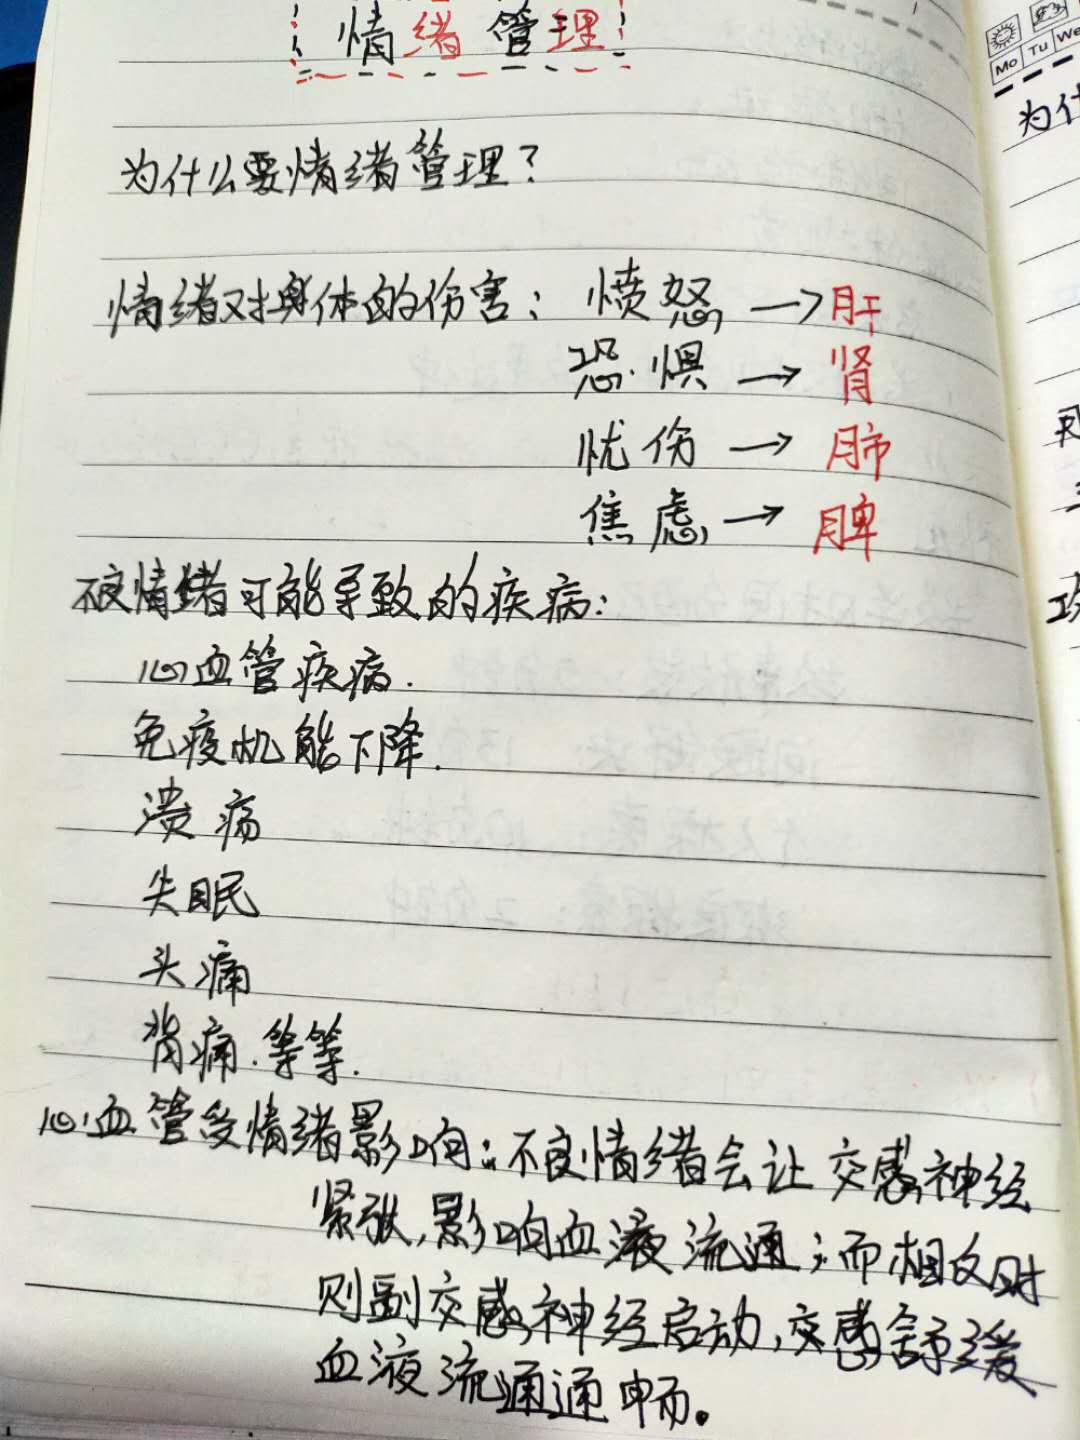 情绪管理
为什么要情绪管理?
情绪对身体的伤害: 愤怒→肝
恐惧→肾
忧伤→肺
焦虑→脾
不良情绪可能导致的疾病:
心血管疾病.
免疫机能下降.
溃疡
失眠
头痛
背痛.等等.
心血管受情绪影响:不良情绪会让交感神经
紧张,影响血液流通;而相反时
则副交感神经启动,交感舒缓
血液流通通畅。
Mo Tu We
为什